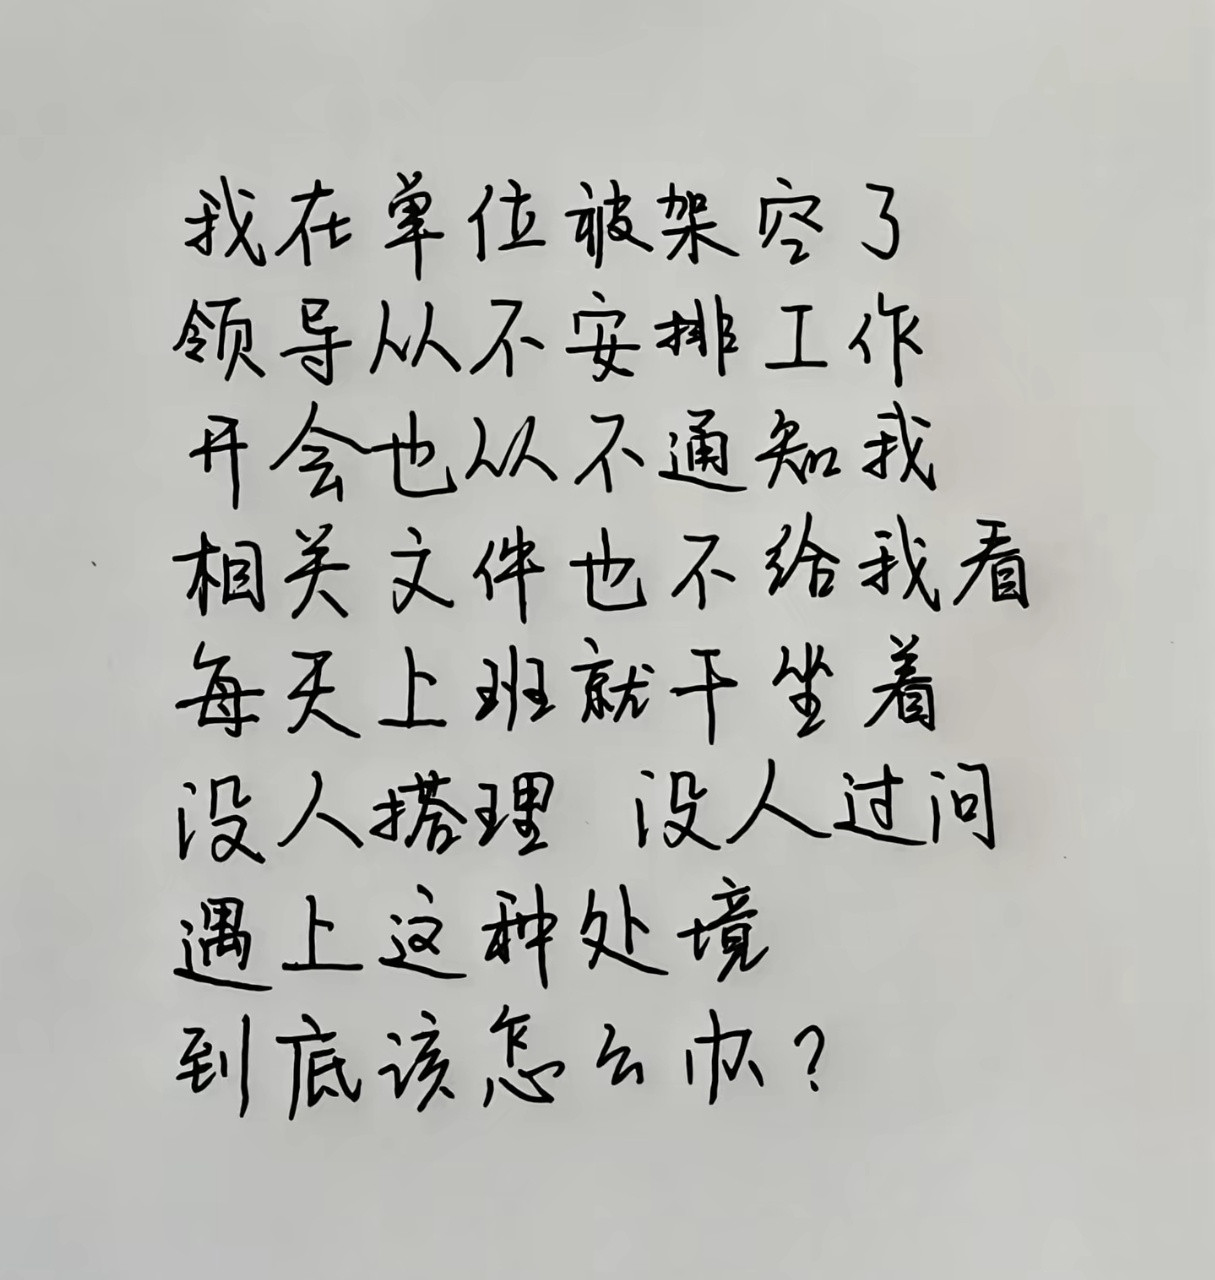 我在单位被架空了
领导从不安排工作
开会也从不通知我
相关文件也不给我看
每天上班就干坐着
没人搭理 没人过问
遇上这种处境
到底该怎么办?